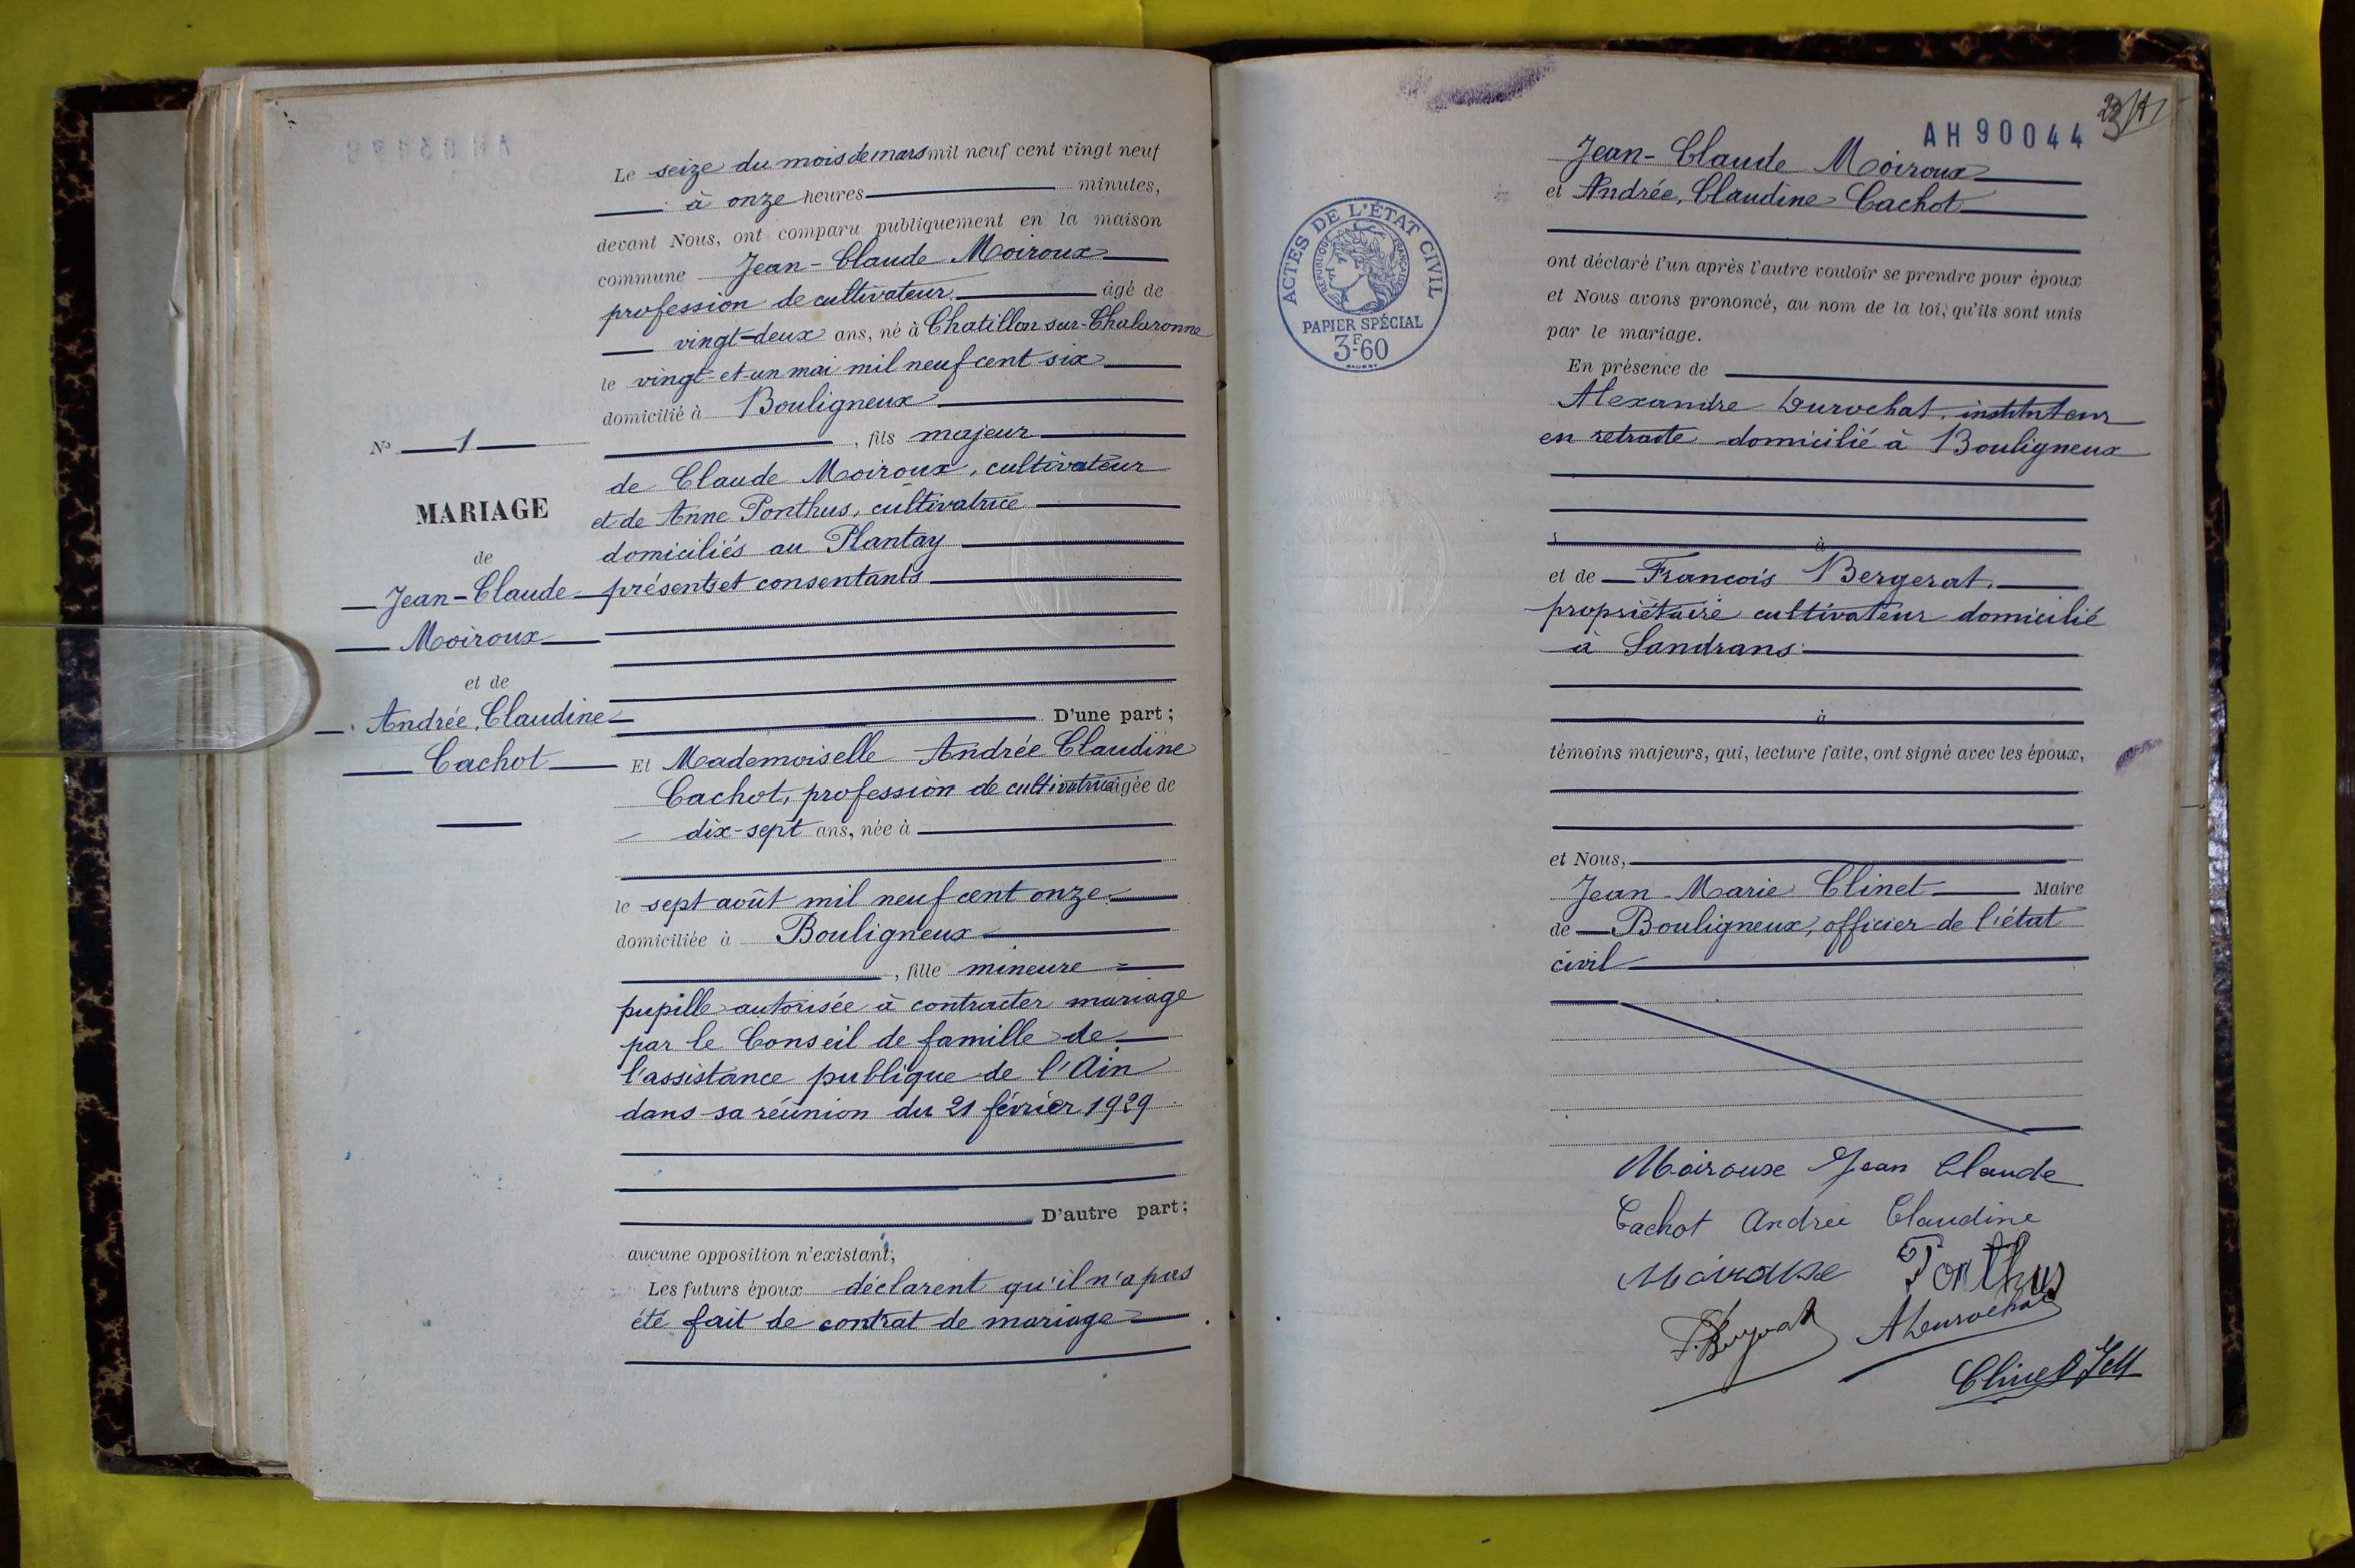 Le seize du mois de mars mil neuf cent vingt neuf
à onze heures minutes,
devant Nous, ont comparu publiquement en la maison
commune Jean-Claude Moiroux
profession de cultivateur âgé de
vingt-deux ans, né à Chatillon sur-Chalaronne
le vingt-et-un mai mil neuf cent six
domicilié à Bouligneux
, fils majeur
de Claude Moiroux, cultivateur
et de Anne Ponthus, cultivatrice
domiciliés au Plantay
présents et consentants
D'une part;
Et Mademoiselle Andrée Claudine
Cachot, profession de cultivatrice âgée de
dix-sept ans, née à
le sept août mil neuf cent onze
domiciliée à Bouligneux
, fille mineure
pupille autorisée à contracter mariage
par le Conseil de famille de
l'assistance publique de l'Ain
dans sa réunion du 21 février 1929
D'autre part;
aucune opposition n'existant,
Les futurs époux déclarent qu'il n'a pas
été fait de contrat de mariage
No 1
MARIAGE
de
Jean-Claude
Moiroux
et de
Andrée, Claudine
Cachot
AH 90044
ACTES DE L'ÉTAT CIVIL
RÉPUBLIQUE FRANÇAISE
PAPIER SPÉCIAL
3F60
Jean-Claude Moiroux
et Andrée, Claudine Cachot
ont déclaré l'un après l'autre vouloir se prendre pour époux
et Nous avons prononcé, au nom de la loi, qu'ils sont unis
par le mariage.
En présence de
Alexandre Durochat, instituteur
en retraite domicilié à Bouligneux
à
et de François Bergerat,
propriétaire cultivateur domicilié
à Sandrans
à
témoins majeurs, qui, lecture faite, ont signé avec les époux,
et Nous,
Jean Marie Clinet Maire
de Bouligneux, officier de l'état
civil
Moiroux Jean Claude
Cachot Andrée Claudine
Moiroux Ponthus
F. Bergerat ADurochat
Clinet JM